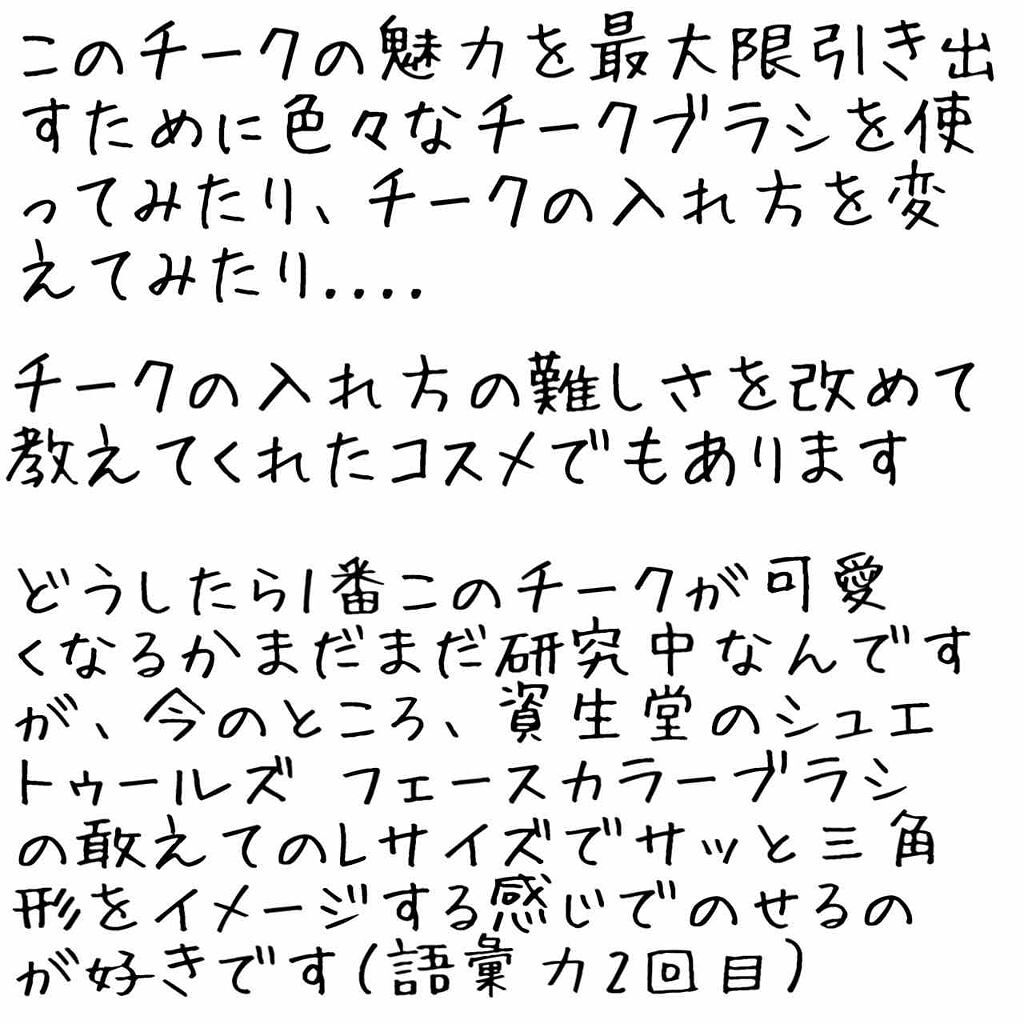 このチークの魅力を最大限引き出
すために色々なチークブラシを使
ってみたり、チークの入れ方を変
えてみたり....
チークの入れ方の難しさを改めて
教えてくれたコスメでもあります
どうしたら1番このチークが可愛
くなるかまだまだ研究中なんです
が、今のところ、資生堂のシュエ
トゥールズ フェースカラーブラシ
の敢えてのLサイズでサッと三角
形をイメージする感じでのせるの
が好きです(語彙力2回目)